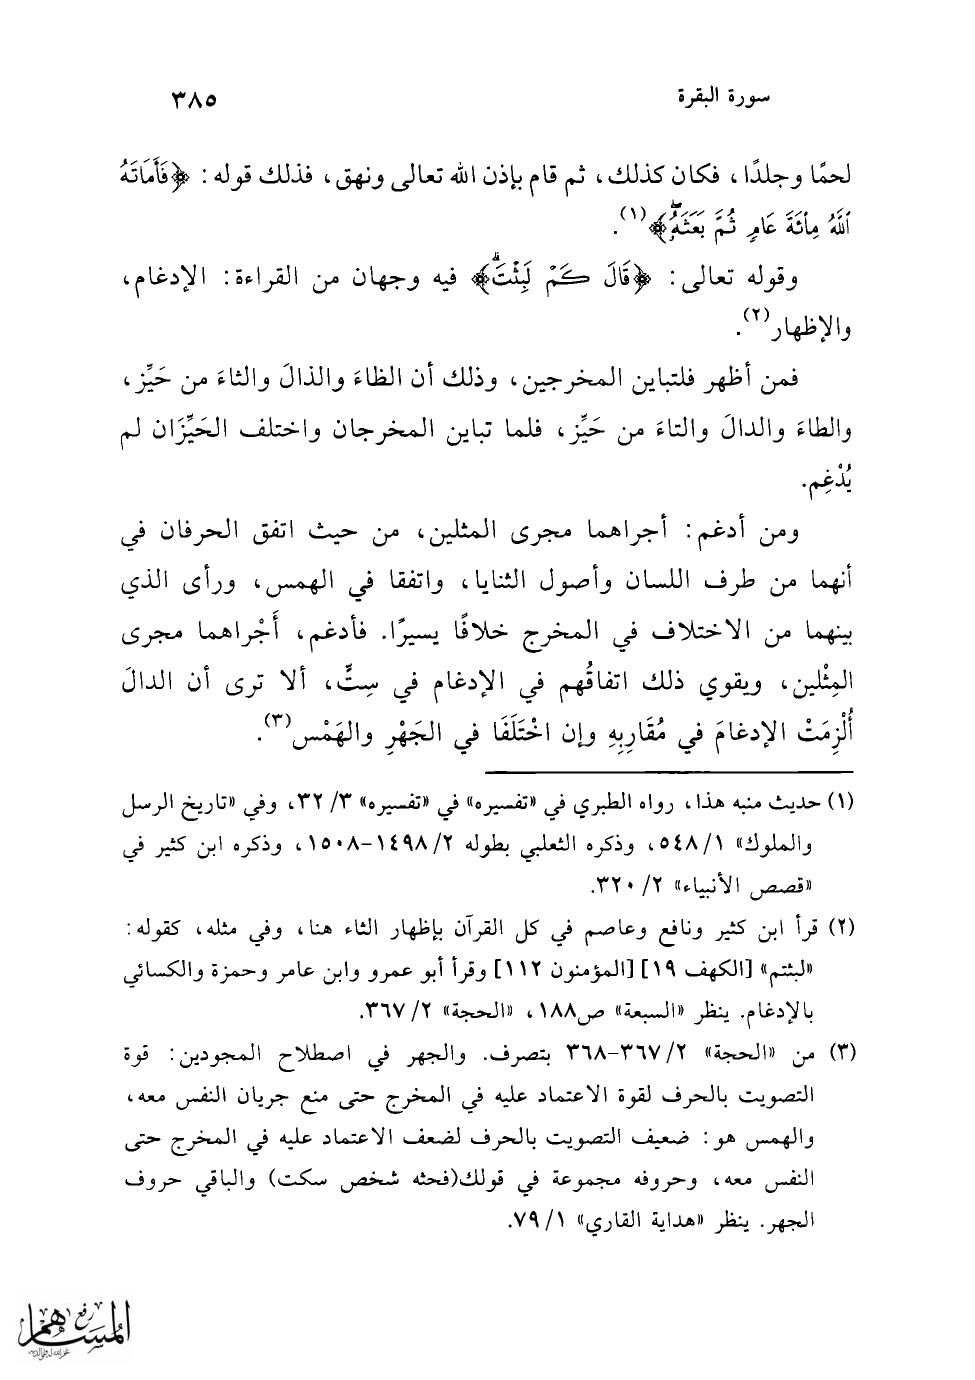 سورة البقرة ٣٨٥
لحمًا وجلدًا، فكان كذلك، ثم قام بإذن الله تعالى ونهق، فذلك قوله: ﴿فَأَمَاتَهُ
ٱللَّهُ مِاْئَةَ عَامٍ ثُمَّ بَعَثَهُۥۖ﴾(١).
وقوله تعالى: ﴿قَالَ كَمْ لَبِثْتَۖ﴾ فيه وجهان من القراءة: الإدغام،
والإظهار(٢).
فمن أظهر فلتباين المخرجين، وذلك أن الظاءَ والذالَ والثاءَ من حَيِّز،
والطاءَ والدالَ والتاءَ من حَيِّز، فلما تباين المخرجان واختلف الحَيِّزَان لم
يُدْغِم.
ومن أدغم: أجراهما مجرى المثلين، من حيث اتفق الحرفان في
أنهما من طرف اللسان وأصول الثنايا، واتفقا في الهمس، ورأى الذي
بينهما من الاختلاف في المخرج خلافًا يسيرًا. فأدغم، أَجْراهما مجرى
المِثْلين، ويقوي ذلك اتفاقُهم في الإدغام في سِتٍّ، ألا ترى أن الدالَ
أُلْزِمَتْ الإدغامَ في مُقَارِبِهِ وإن اخْتَلَفَا في الجَهْرِ والهَمْس(٣).
(١) حديث منبه هذا، رواه الطبري في «تفسيره» في «تفسيره» ٣/ ٣٢، وفي «تاريخ الرسل
والملوك» ١/ ٥٤٨، وذكره الثعلبي بطوله ٢/ ١٤٩٨-١٥٠٨، وذكره ابن كثير في
«قصص الأنبياء» ٢/ ٣٢٠.
(٢) قرأ ابن كثير ونافع وعاصم في كل القرآن بإظهار الثاء هنا، وفي مثله، كقوله:
«لبثتم» [الكهف ١٩] [المؤمنون ١١٢] وقرأ أبو عمرو وابن عامر وحمزة والكسائي
بالإدغام. ينظر «السبعة» ص١٨٨، «الحجة» ٢/ ٣٦٧.
(٣) من «الحجة» ٢/ ٣٦٧-٣٦٨ بتصرف. والجهر في اصطلاح المجودين: قوة
التصويت بالحرف لقوة الاعتماد عليه في المخرج حتى منع جريان النفس معه،
والهمس هو: ضعيف التصويت بالحرف لضعف الاعتماد عليه في المخرج حتى
النفس معه، وحروفه مجموعة في قولك(فحثه شخص سكت) والباقي حروف
الجهر. ينظر «هداية القاري» ١/ ٧٩.